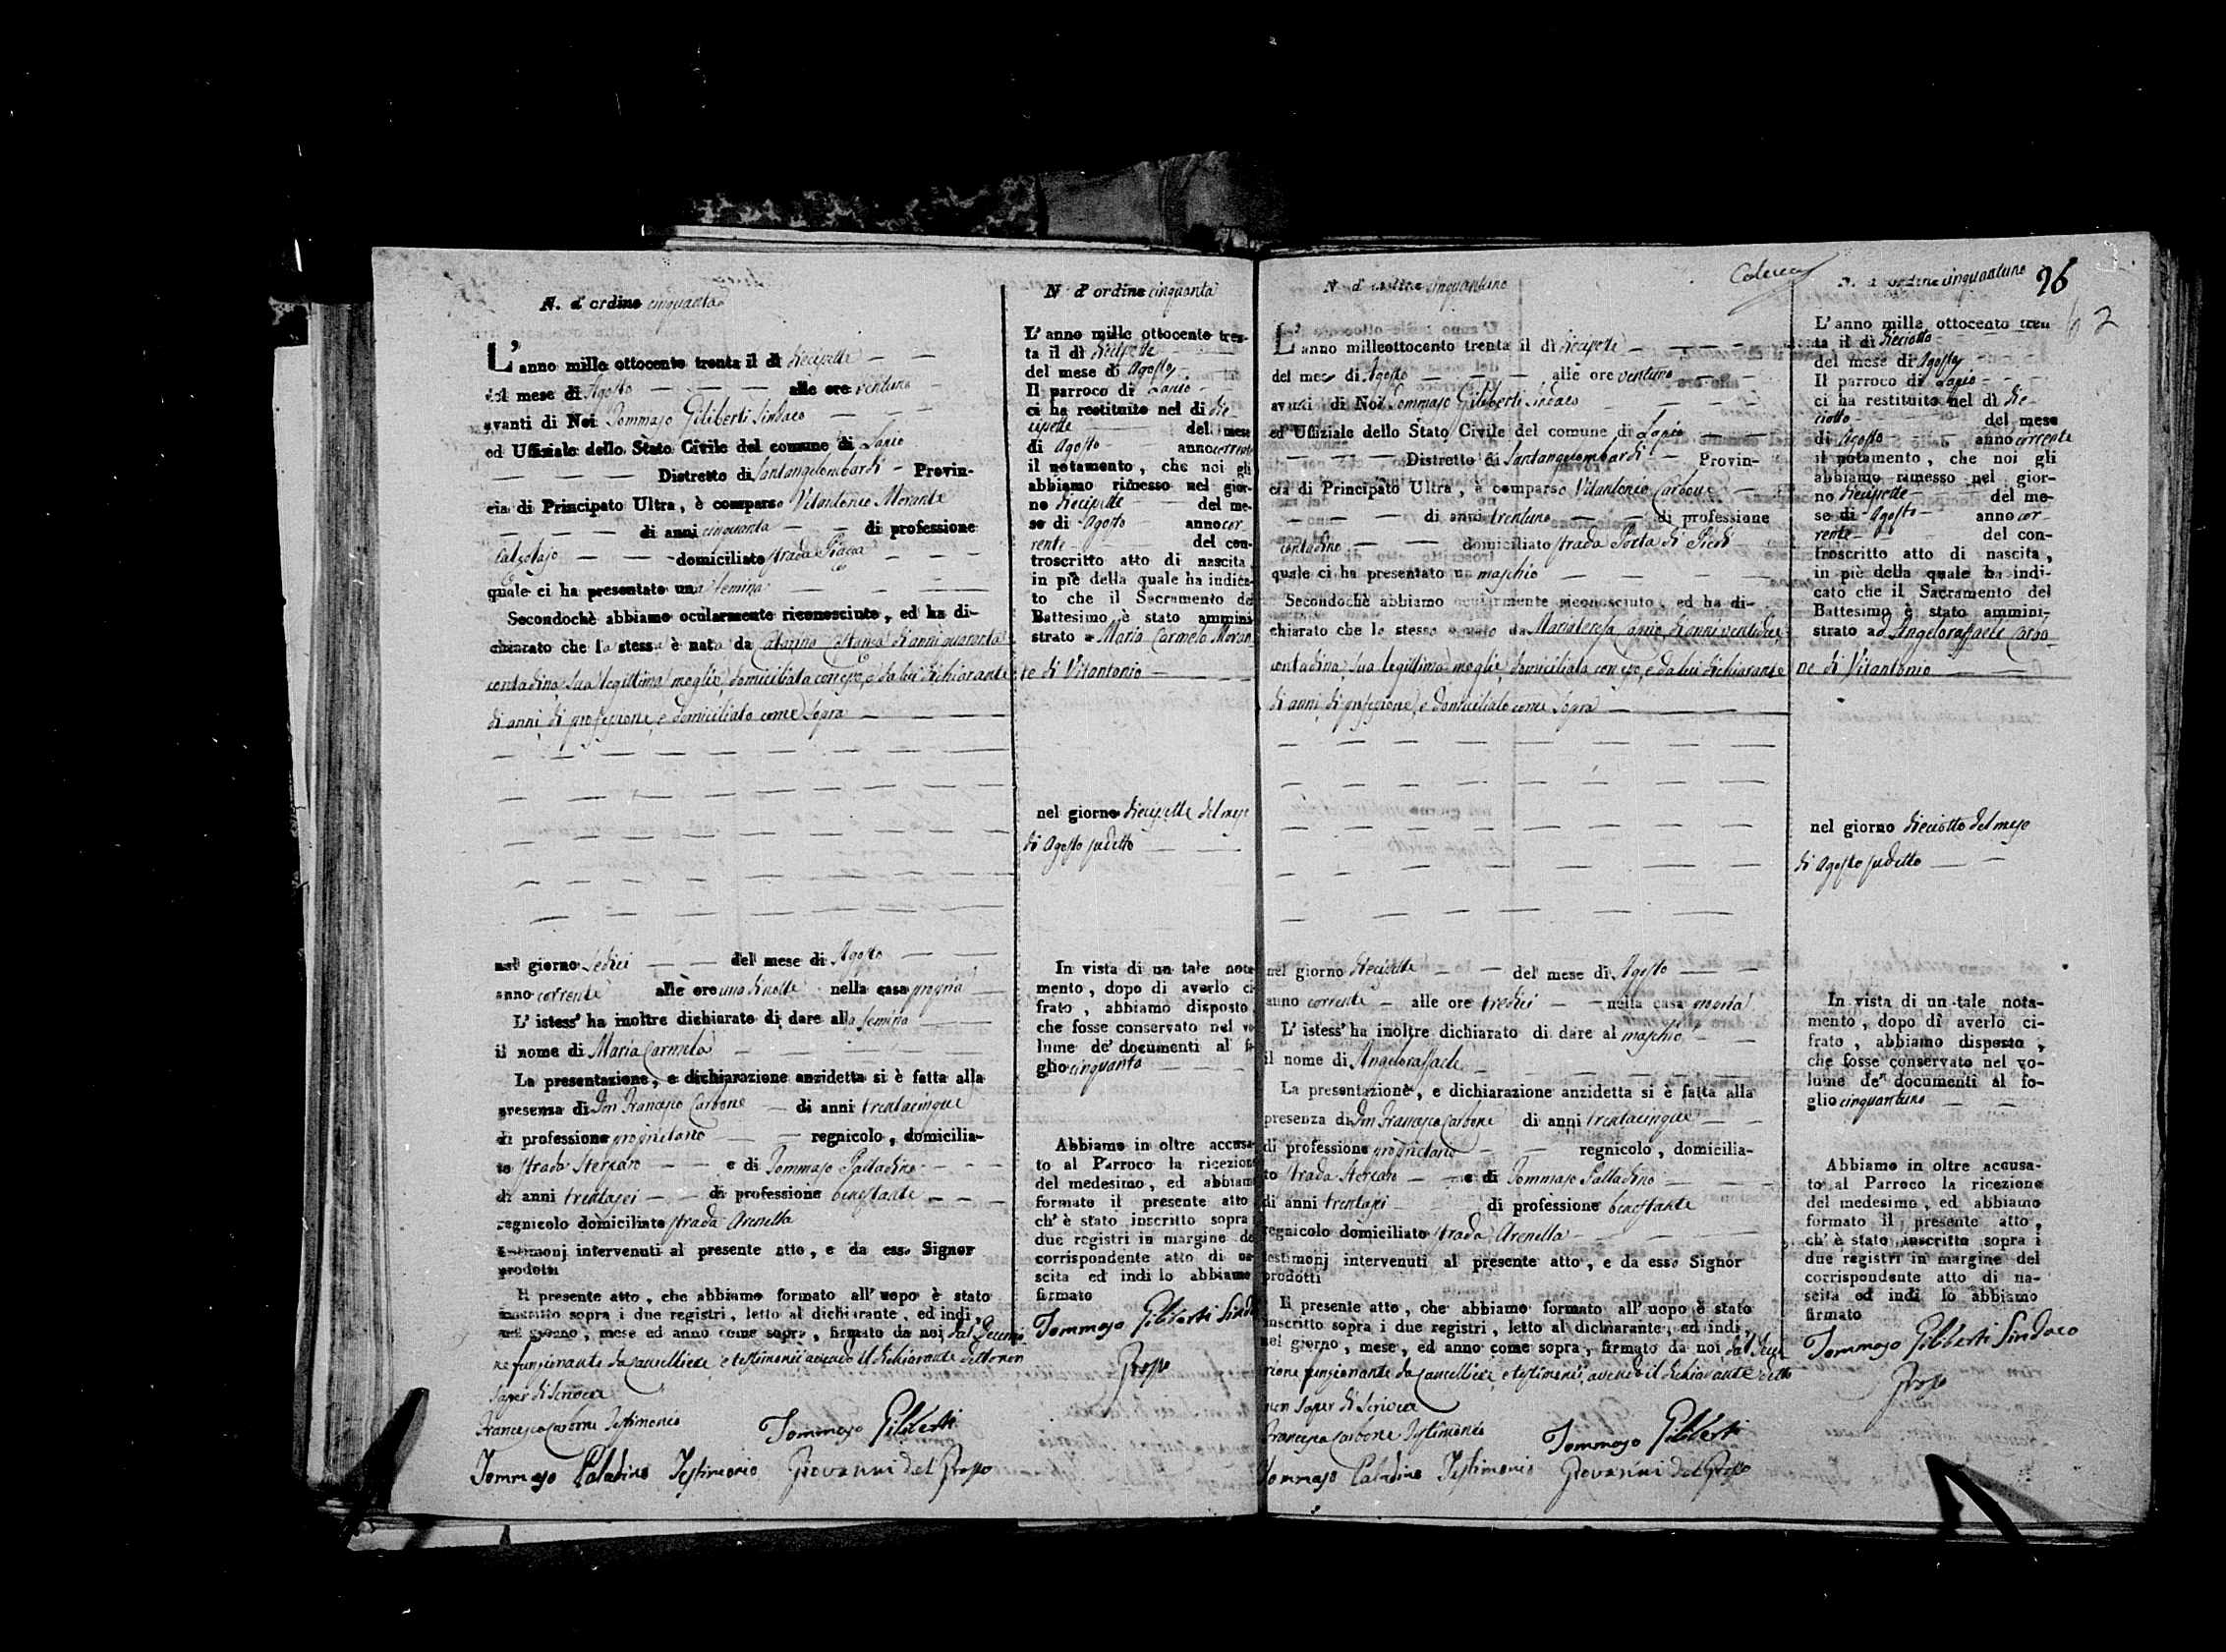 N. d' ordine cinquanta
L'anno mille ottocento trenta il dì diecisette
del mese di Agosto alle ore ventuno
avanti di Noi Tommaso Giliberti Sindaco
ed Uffiziale dello Stato Civile del comune di Lapio
Distretto di Santangelombardi Provin-
cia di Principato Ultra, è comparso Vitantonio Morante
di anni cinquanta di professione
Calzolajo domiciliato strada Piazza
quale ci ha presentato una femina
Secondochè abbiamo ocularmente riconosciuto, ed ha di-
chiarato che la stessa è nata da di anni quaranta
contadina, sua legittima moglie, domiciliata con esso, e da lui dichiarante
di anni, di professione, e domiciliato come sopra
nel giorno sedici del mese di Agosto
anno corrente alle ore una di notte nella casa propria
L' istess' ha inoltre dichiarato di dare alla femina
il nome di Maria Carmela
La presentazione, e dichiarazione anzidetta si è fatta alla
presenza di Don Francesco Carbone di anni trentacinque
di professione proprietario regnicolo, domicilia-
to strada Stercaro e di Tommaso Palladino
di anni trentasei di professione benestante
regnicolo domiciliato strada Arenella
testimonj intervenuti al presente atto, e da esso Signor
prodotti
Il presente atto, che abbiamo formato all' uopo è stato
inscritto sopra i due registri, letto al dichiarante, ed indi,
nel giorno, mese ed anno come sopra, firmato da noi dal Decurio-
ne funzionante da Cancelliere, e testimonii avendo il dichiarante detto non
saper di scrivere
Francesco Carbone Testimonio Tommaso Giliberti
Tommaso Paladino Testimonio Giovanni del Grosso
N. d' ordine cinquanta
L'anno mille ottocento tren-
ta il dì diecisette
del mese di Agosto
Il parroco di Lapio
ci ha restituito nel dì die-
cisette del mese
di Agosto anno corrente
il notamento, che noi gli
abbiamo rimesso nel gior-
no diecisette del me-
se di Agosto anno cor-
rente del con-
troscritto atto di nascita,
in piè della quale ha indica-
to che il Sacramento del
Battesimo è stato ammini-
strato a Maria Carmela Moran-
te di Vitantonio
nel giorno diecisette del mese
di Agosto sudetto
In vista di un tale nota-
mento, dopo di averlo ci-
frato, abbiamo disposto,
che fosse conservato nel vo-
lume de' documenti al fo-
glio cinquanta
Abbiamo in oltre accusa-
to al Parroco la ricezione
del medesimo, ed abbiamo
formato il presente atto,
ch' è stato inscritto sopra i
due registri in margine del
corrispondente atto di na-
scita ed indi lo abbiamo
firmato
Tommaso Giliberti Sindaco
Grosso
N. d' ordine cinquantuno
L'anno milleottocento trenta il dì diecisette
del mese di Agosto alle ore ventuno
avanti di Noi Tommaso Giliberti Sindaco
ed Uffiziale dello Stato Civile del comune di Lapio
Distretto di Santangelombardi Provin-
cia di Principato Ultra, è comparso Vitantonio Carbone
di anni trentuno di professione
contadino domiciliato strada Porta di Piedi
quale ci ha presentato un maschio
Secondochè abbiamo ocularmente riconosciuto, ed ha di-
chiarato che lo stesso è nato da Mariateresa di anni ventidue
contadina, sua legittima moglie, domiciliata con esso, e da lui dichiarante
di anni, di professione, e domiciliato come sopra
nel giorno diecisette del mese di Agosto
anno corrente alle ore tredici nella casa propria
L' istess' ha inoltre dichiarato di dare al maschio
il nome di Angeloraffaele
La presentazione, e dichiarazione anzidetta si è fatta alla
presenza di Don Francesco Carbone di anni trentacinque
di professione proprietario regnicolo, domicilia-
to strada Stercaro e di Tommaso Palladino
di anni trentasei di professione benestante
regnicolo domiciliato strada Arenella
testimonj intervenuti al presente atto, e da esso Signor
prodotti
Il presente atto, che abbiamo formato all' uopo è stato
inscritto sopra i due registri, letto al dichiarante, ed indi,
nel giorno, mese, ed anno come sopra, firmato da noi dal Decu-
rione funzionante da Cancelliere, e testimonii, avendo il dichiarante detto
non saper di scrivere
Francesco Carbone Testimonio Tommaso Giliberti
Tommaso Paladino Testimonio Giovanni del Grosso
N. d' ordine cinquantuno
96
62
L'anno mille ottocento tren-
ta il dì dieciotto
del mese di Agosto
Il parroco di Lapio
ci ha restituito nel dì die-
ciotto del mese
di Agosto anno corrente
il notamento, che noi gli
abbiamo rimesso nel gior-
no diecisette del me-
se di Agosto anno cor-
rente del con-
troscritto atto di nascita,
in piè della quale ha indi-
cato che il Sacramento del
Battesimo è stato ammini-
strato ad Angeloraffaele Carbo-
ne di Vitantonio
nel giorno dieciotto del mese
di Agosto sudetto
In vista di un tale nota-
mento, dopo di averlo ci-
frato, abbiamo disposto,
che fosse conservato nel vo-
lume de' documenti al fo-
glio cinquantuno
Abbiamo in oltre accusa-
to al Parroco la ricezione
del medesimo, ed abbiamo
formato il presente atto,
ch' è stato inscritto sopra i
due registri in margine del
corrispondente atto di na-
scita ed indi lo abbiamo
firmato
Tommaso Giliberti Sindaco
Grosso